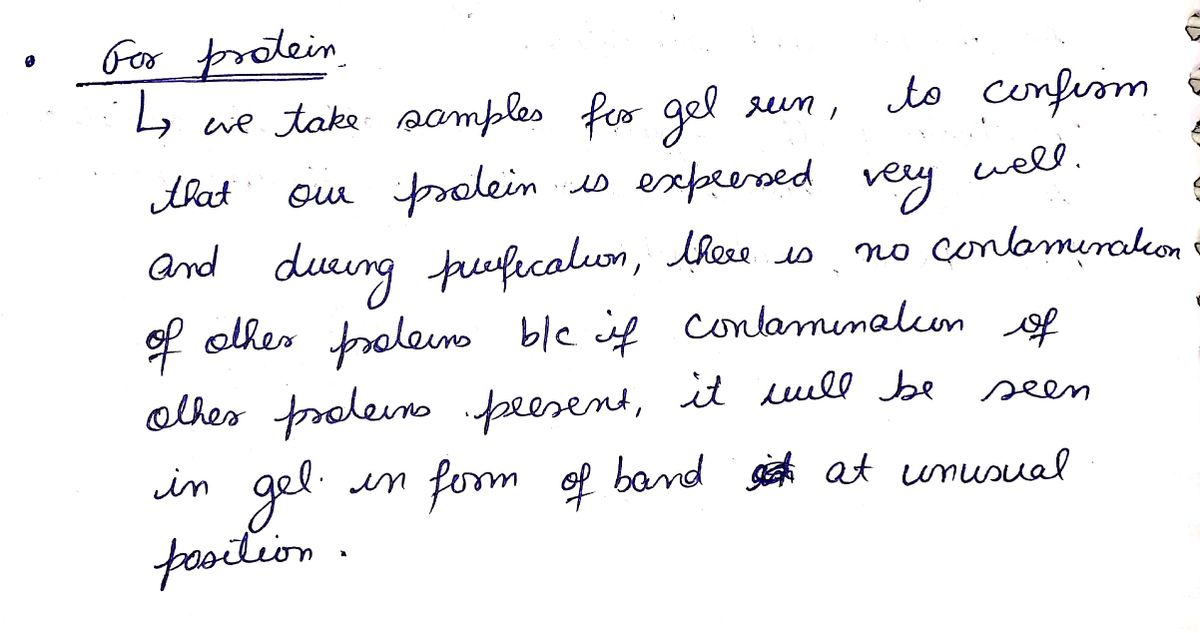 • For protein
↳ we take samples for gel run, to confirm
that our protein is expressed very well.
and during purification, there is no contamination
of other proteins b/c if contamination of
other proteins present, it will be seen
in gel in form of band at unusual
position.